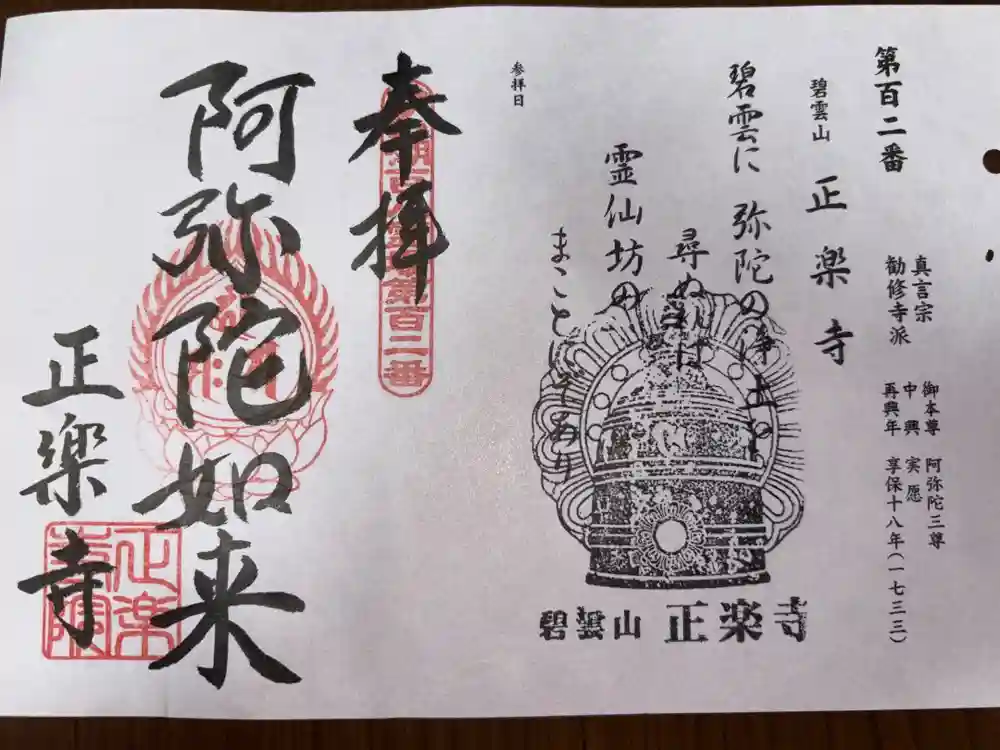 第百二番
真言宗
勧修寺派
御本尊 阿弥陀三尊
中興 実愿
再興年 享保十八年(一七三三)
碧雲山 正楽寺
碧雲に 弥陀の浄土を
尋ぬれば
霊仙坊の
まことなりけり
参拝日
碧雲山 正楽寺
奉拝
第百二番
阿弥陀如来
正樂寺